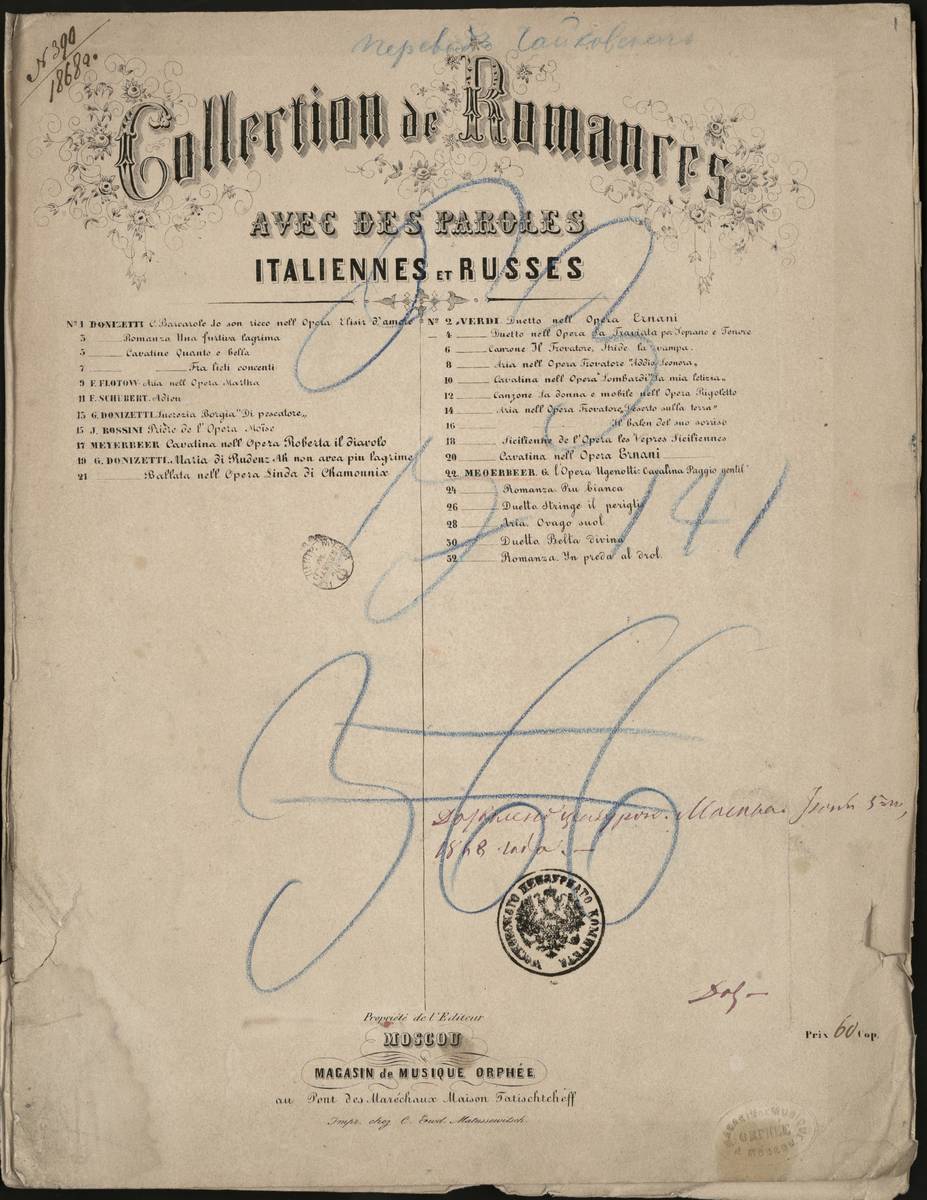 N 390
1868 г.
1
переводъ Чайковскаго
Collection de Romances
AVEC DES PAROLES
ITALIENNES ET RUSSES
No 1 DONIZETTI C. Barcarole Io son ricco nell Opera Elisir d'amore
3 Romanza Una furtiva lagrima
5 Cavatine Quanto e bella
7 Fra lieti concenti
9 F. FLOTOW. Aria nell Opera Martha
11 F. SCHUBERT. Adieu
13 G. DONIZETTI. Lucrezia Borgia "Di pescatore„
15 J. ROSSINI Prière de l'Opera Moïse
17 MEYERBEER Cavatina nell Opera Roberta il diavolo
19 G. DONIZETTI. Maria di Rudenz Ah non avea piu lagrime
21 Ballata nell Opera Linda di Chamounix
No 2 VERDI Duetto nell Opera Ernani
4 Duetto nell Opera La Traviata per Soprano e Tenore
6 Canzone Il Trovatore, Stride la vampa.
8 Aria nell Opera Trovatore "Addio Leonora„
10 Cavatina nell Opera "Lombardi" La mia letizia„
12 Canzone La donna e mobile nell Opera Rigoletto
14 Aria nell Opera Trovatore, "Deserto sulla terra"
16 Il balen del suo sorriso
18 Sicilienne de l'Opera les Vêpres Siciliennes
20 Cavatina nell Opera Ernani
22 MEOERBEER. G. l'Opera Ugenotti: Cavalina Paggio gentil"
24 Romanza Piu bianca
26 Duetto Stringe il periglio
28 Aria. Ovago suol
30 Duetto Belta divina
32 Romanza. In preda al drol.
141
366
Дозволено цензурою. Москва. Іюня 5го,
1868 года. —
МОСКОВСКАГО ЦЕНЗУРНАГО КОМИТЕТА
Propriété de l'Editeur
MOSCOU
MAGASIN de MUSIQUE ORPHÉE
au Pont des Maréchaux Maison Tatischtcheff
Impr. chez C. Ewd. Matussewitsch.
Prix 60 Cop.
MAGASIN de MUSIQUE
ORPHÉE
A MOSCOU